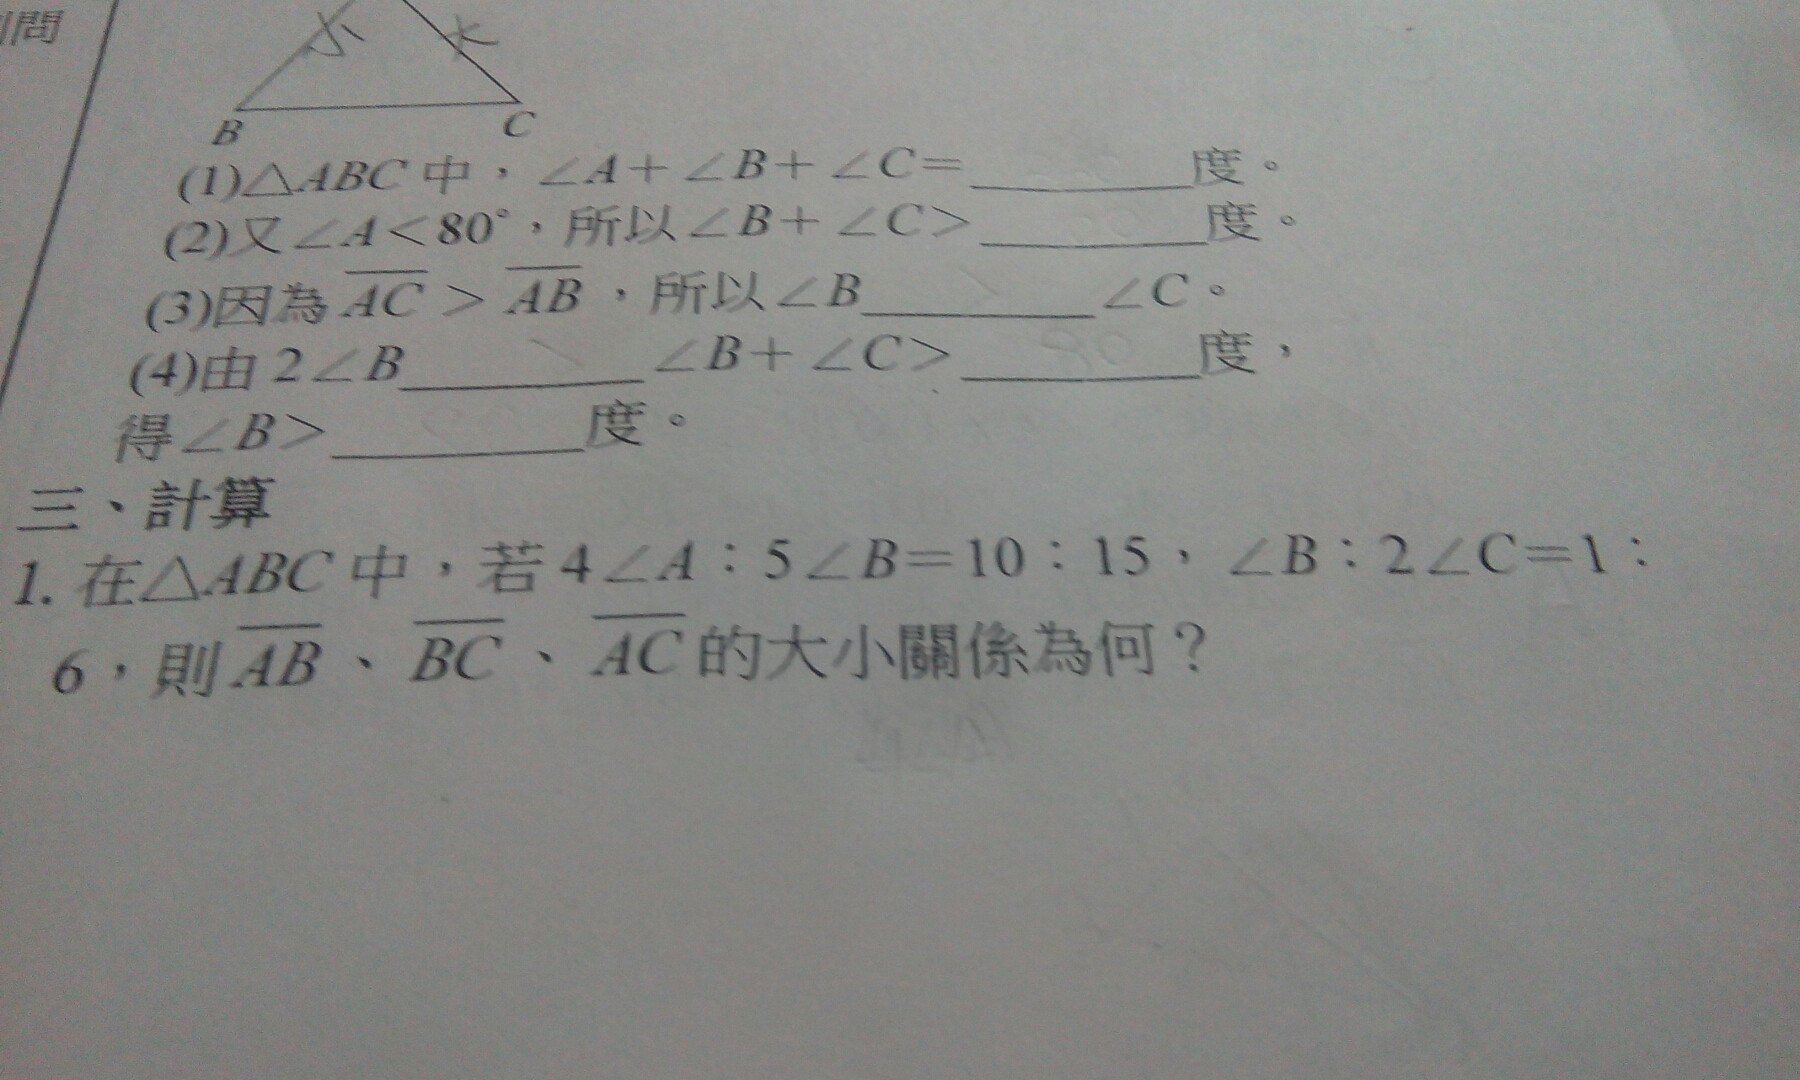 問
B C
(1)△ABC 中，∠A＋∠B＋∠C＝________度。
(2)又∠A＜80°，所以∠B＋∠C＞________度。
(3)因為 AC ＞ AB ，所以∠B________∠C。
(4)由 2∠B________∠B＋∠C＞ 80 度，
得∠B＞________度。
三、計算
1. 在△ABC 中，若 4∠A：5∠B＝10：15，∠B：2∠C＝1：
6，則 AB 、 BC 、 AC 的大小關係為何？